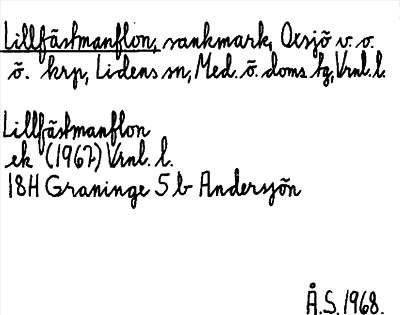 Lillfästmanflon, sankmark, Oxsjö v. o.
ö. krp, Lidens sn, Med. ö. doms. tg, Vrnl. l.
Lillfästmanflon
ek (1967) Vrnl. l.
18H Graninge 5 b Andersjön
Å.S. 1968.